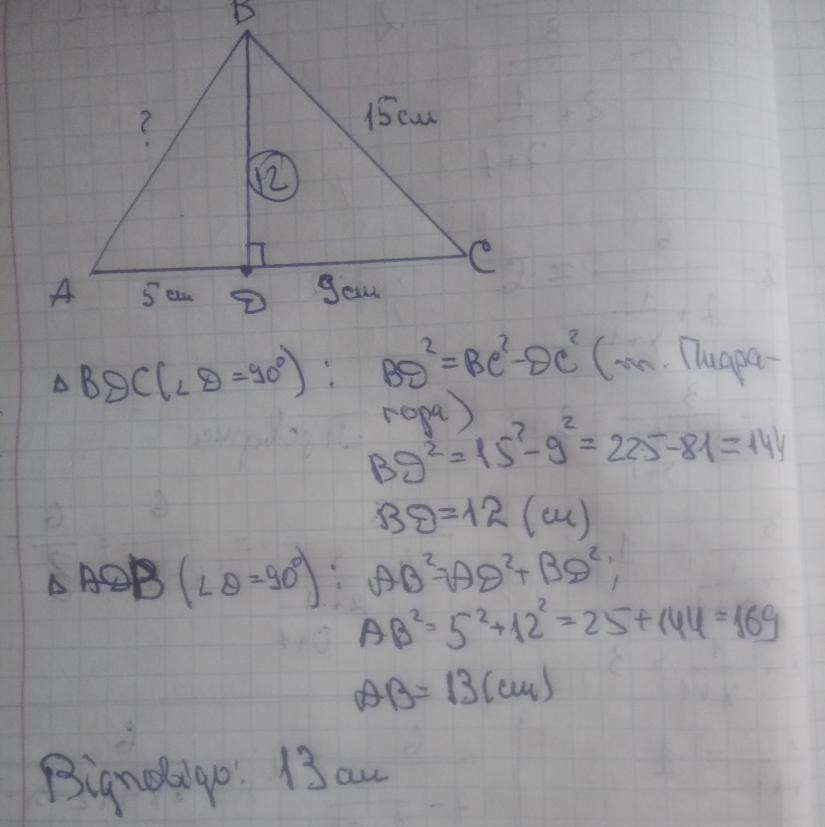 B
?
15 см
12
A
5 см
D
9 см
C
△ BDC (∠D = 90°) : BD² = BC² - DC² (т. Піфа-
гора)
BD² = 15² - 9² = 225 - 81 = 144
BD = 12 (см)
△ ADB (∠D = 90°) : AB² = AD² + BD²;
AB² = 5² + 12² = 25 + 144 = 169
AB = 13 (см)
Відповідь: 13 см